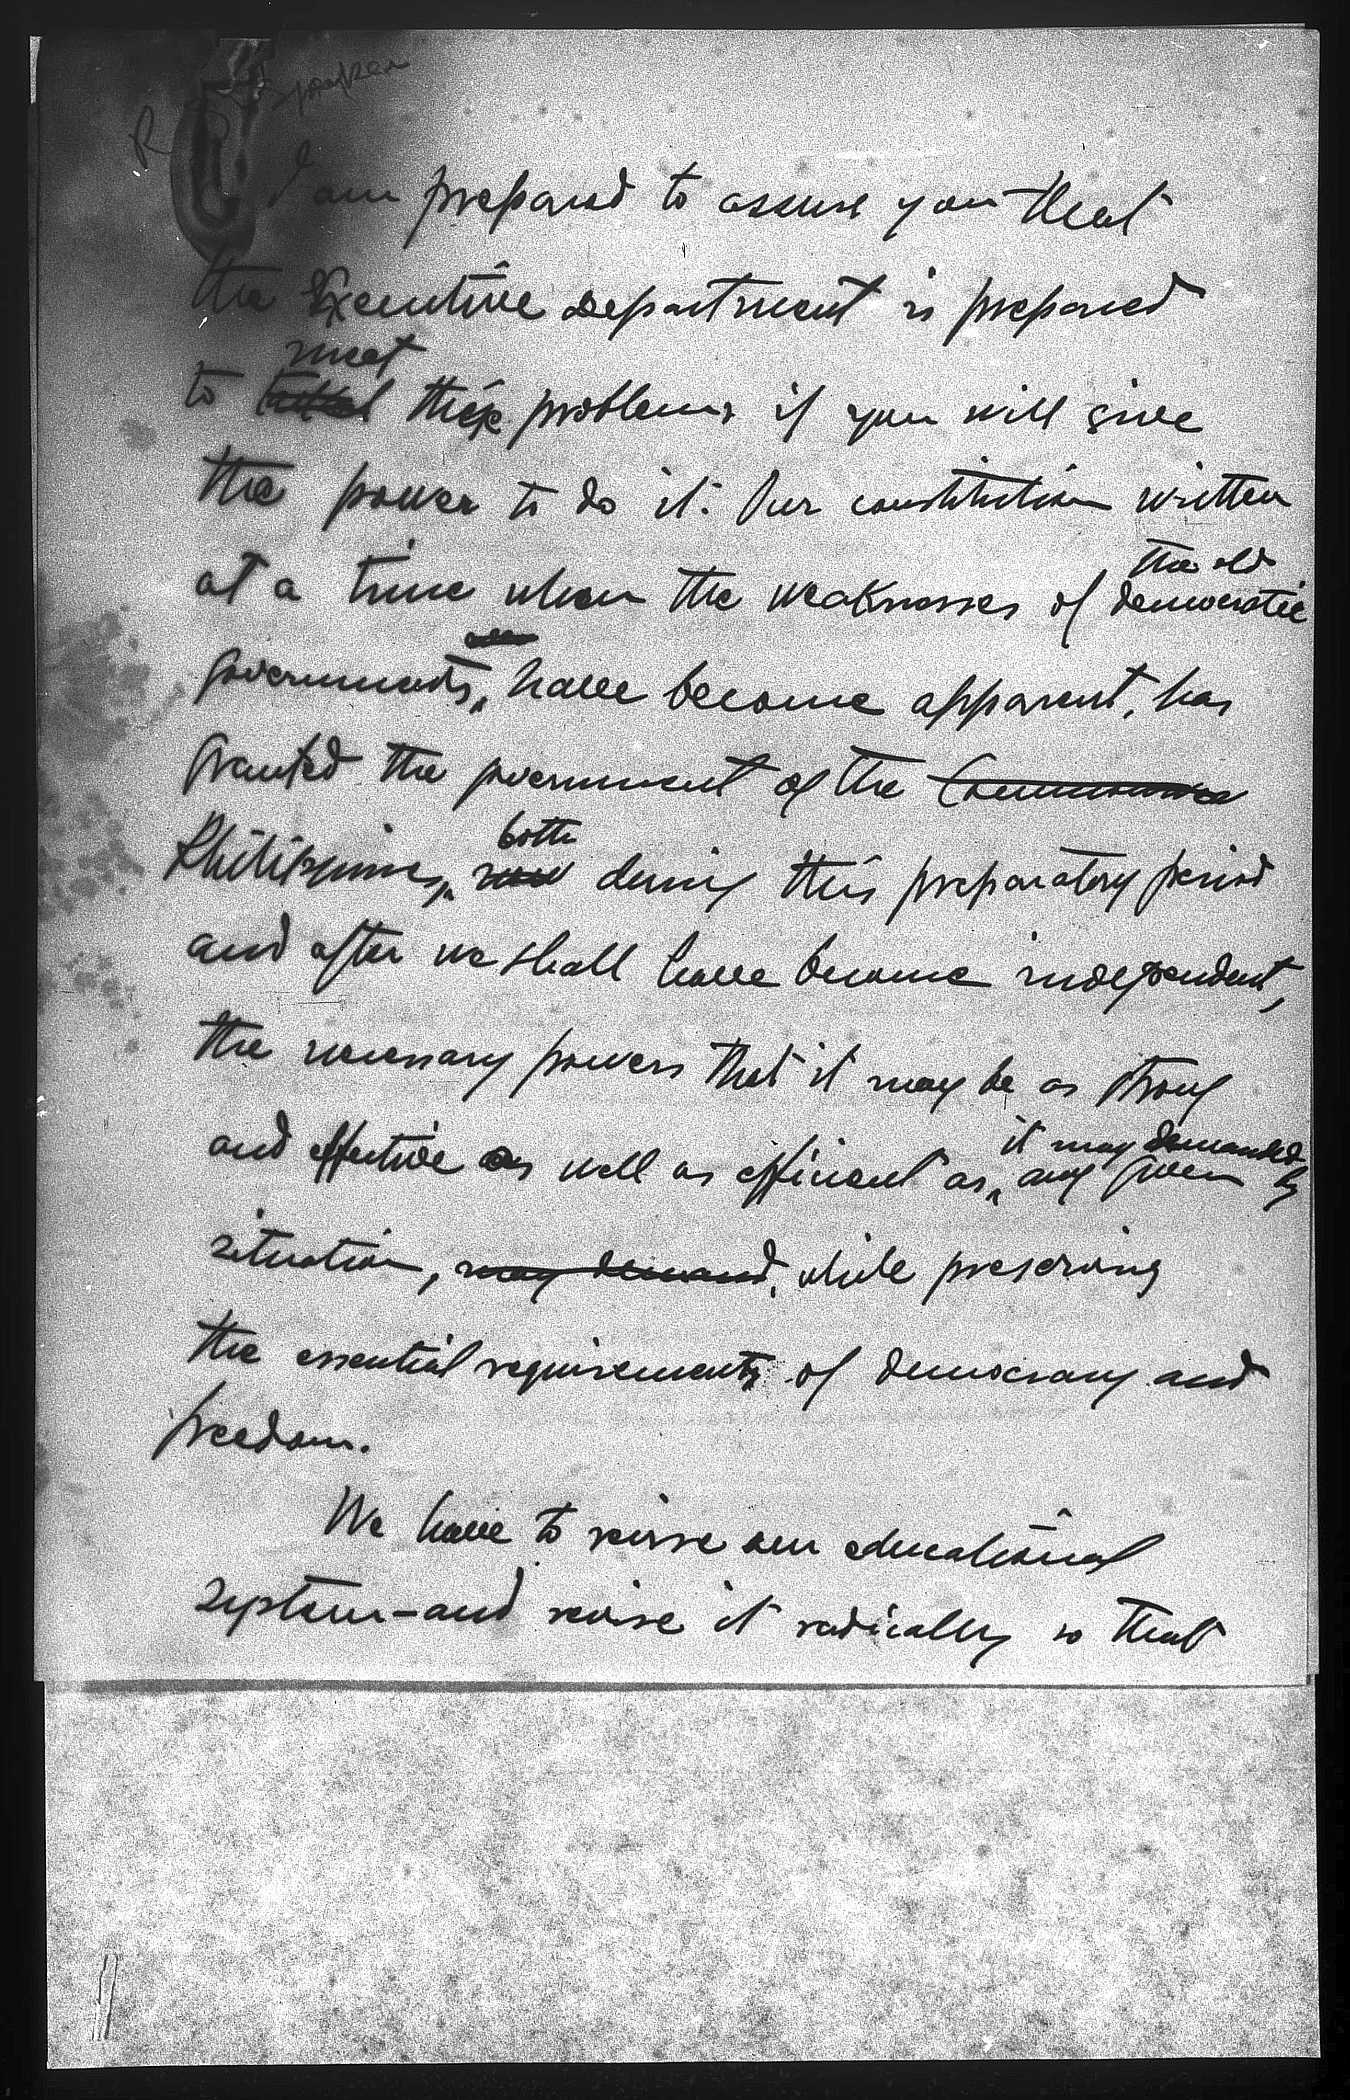 R
I am prepared to assure you that
the Executive department is prepared
meet
to these problems if you will give
the power to do it. Our constitution written
the old
at a time when the weaknesses of democratic
governments, have become apparent, has
granted the government of the
both
Philippines, now during this preparatory period
and after we shall have become independent,
the necessary powers that it may be as strong
it may demanded
and effective as well as efficient as any given by
situation, may demand, while preserving
the essential requirements of democracy and
freedom.
We have to revise our educational
system - and revise it radically so that